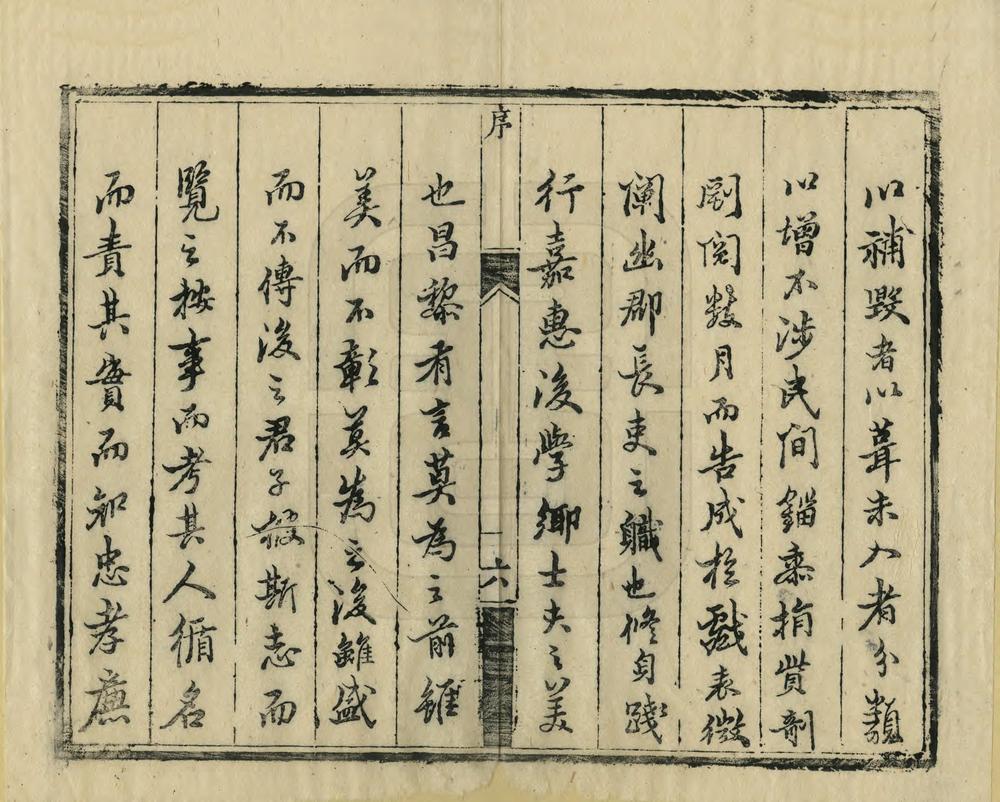 以補毀者以葺未入者分類
以增不涉民間錙黍捐貲剞
劂閱數月而告成於戲表微
闡幽郡長吏之軄也修身踐
行嘉惠後學鄉士夫之美
序
六
也昌黎有言莫為之前雖
美而不彰莫為之後雖盛
而不傳後之君子披斯志而
覽之按事而考其人循名
而責其實而知忠孝廉